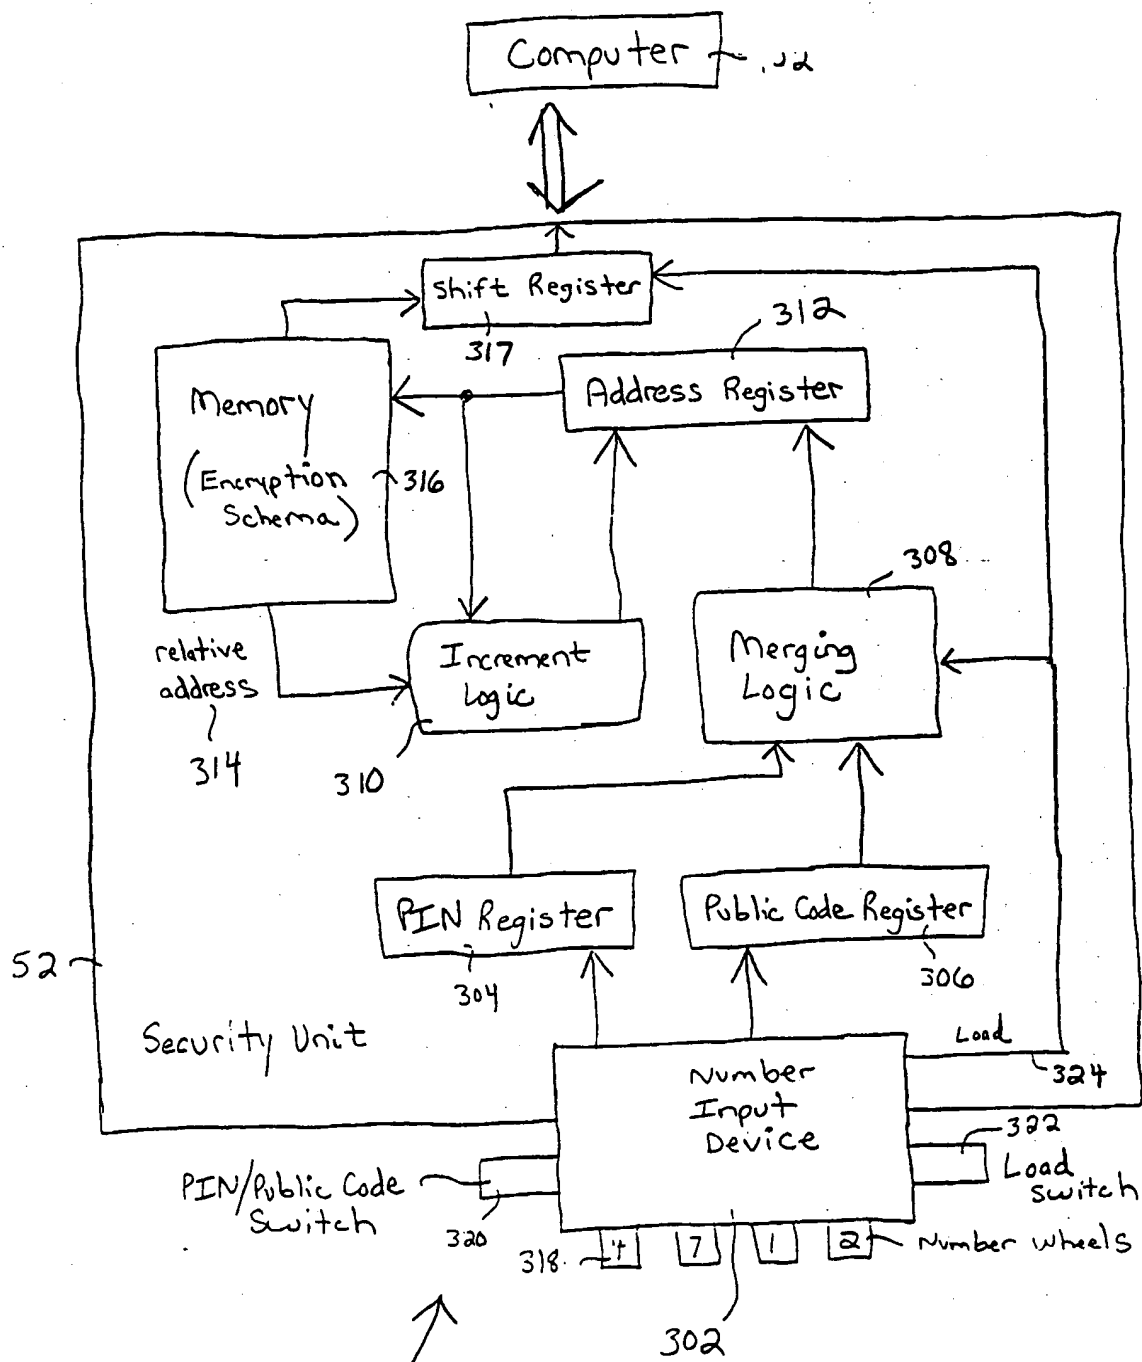 Computer
Shift Register
317
312
Address Register
Memory
(Encryption
Schema)
316
308
relative
address
314
Increment
Logic
310
Merging
Logic
PIN Register
304
Public Code Register
306
52
Security Unit
Load
324
Number
Input
Device
322
Load
Switch
PIN/Public Code
Switch
320
318
4 7 1 2
Number Wheels
302